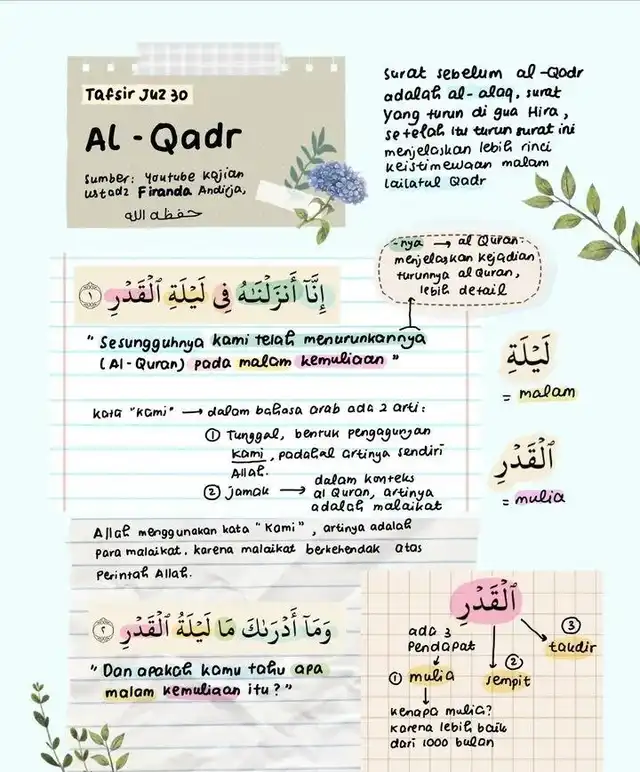 Tafsir Juz 30
Al - Qadr
Sumber: Youtube kajian
ustadz Firanda Andirja,
حفظه الله
Surat sebelum al-Qadr
adalah al-alaq, surat
yang turun di gua Hira,
setelah itu turun surat ini
menjelaskan lebih rinci
keistimewaan malam
lailatul Qadr
-nya → al Quran.
menjelaskan kejadian
turunnya al Quran,
lebih detail
إِنَّآ أَنزَلْنَـٰهُ فِى لَيْلَةِ ٱلْقَدْرِ ١
"Sesungguhnya kami telah menurunkannya
(Al-Quran) pada malam kemuliaan"
لَيْلَةِ
= malam
ٱلْقَدْرِ
= mulia
kata "kami" → dalam bahasa arab ada 2 arti:
① Tunggal, bentuk pengagungan
kami, padahal artinya sendiri
Allah.
② jamak → dalam konteks
al Quran, artinya
adalah malaikat
Allah menggunakan kata "kami", artinya adalah
para malaikat, karena malaikat berkehendak atas
perintah Allah.
وَمَآ أَدْرَىٰكَ مَا لَيْلَةُ ٱلْقَدْرِ ٢
"Dan apakah kamu tahu apa
malam kemuliaan itu?"
ٱلْقَدْرِ
ada 3
pendapat
① mulia
② sempit
③ takdir
kenapa mulia?
karena lebih baik
dari 1000 bulan